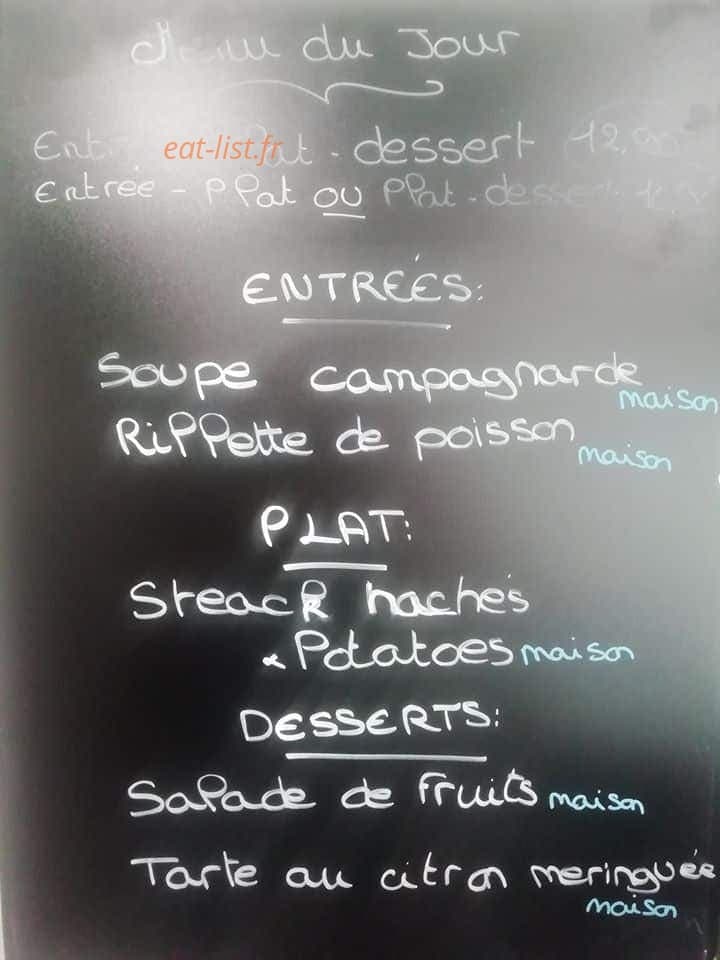 Menu du Jour
Entrée - Plat - dessert 12,90
eat-list.fr
Entrée - Plat ou Plat - dessert
ENTRÉES:
Soupe campagnarde
maison
Rillette de poisson
maison
PLAT:
Steack hachés
& Potatoes maison
DESSERTS:
Salade de fruits maison
Tarte au citron meringuée
maison